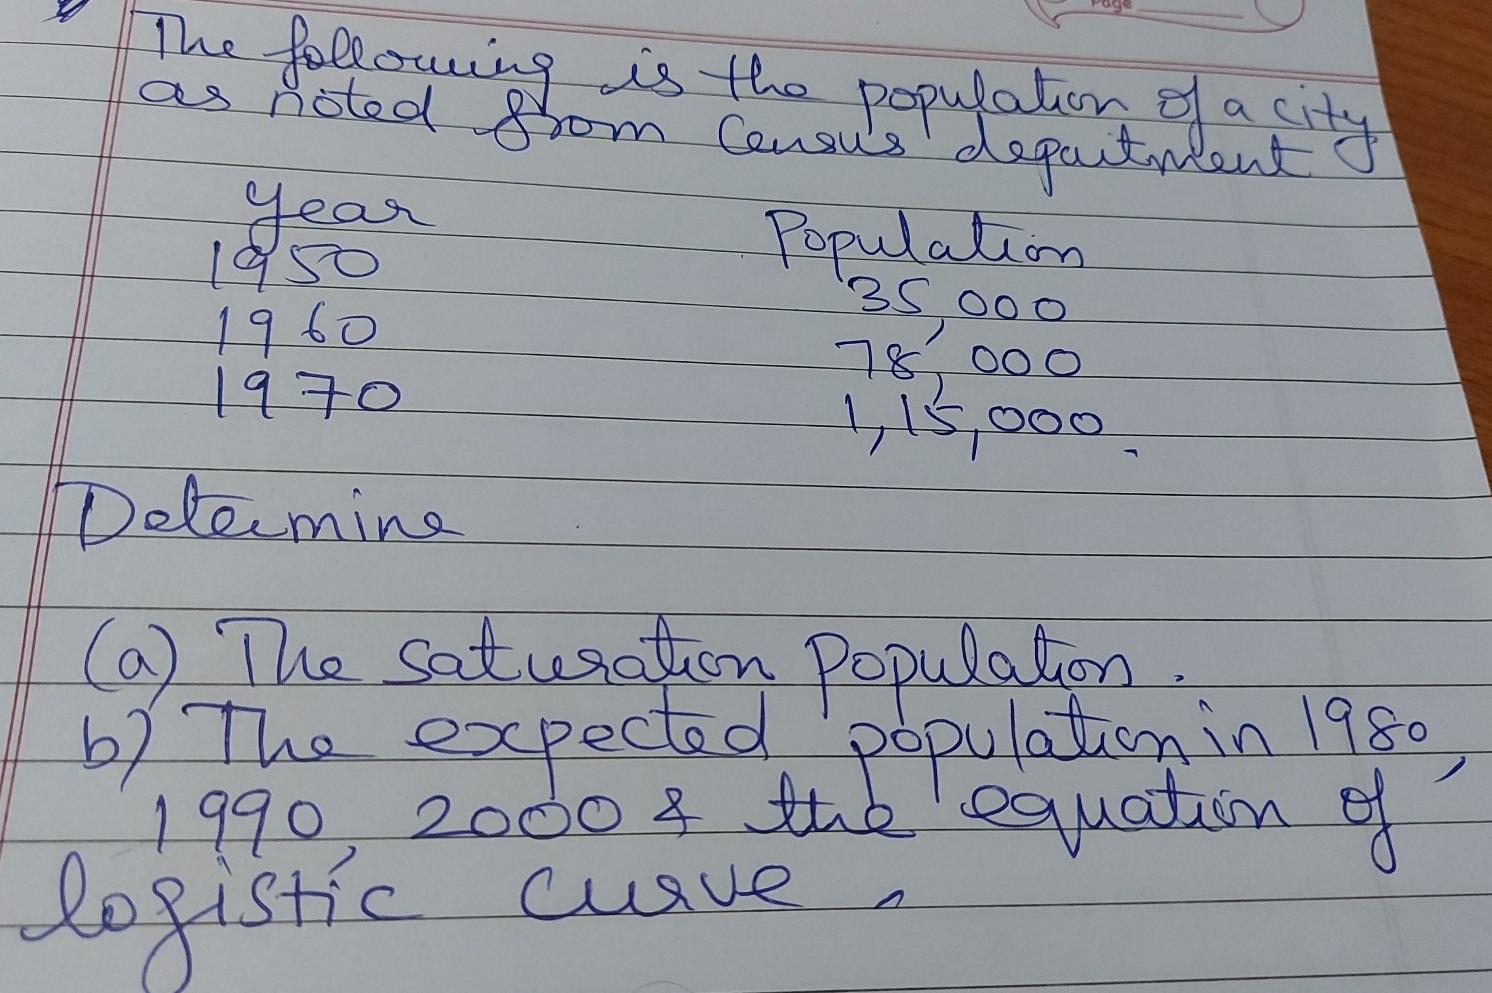 Page
The following is the population of a city
as noted from Census department
Year Population
1950 35,000
1960 78,000
1970 1,15,000.
Determine
(a) The saturation population.
b) The expected population in 1980,
1990, 2000 & the equation of
logistic curve.